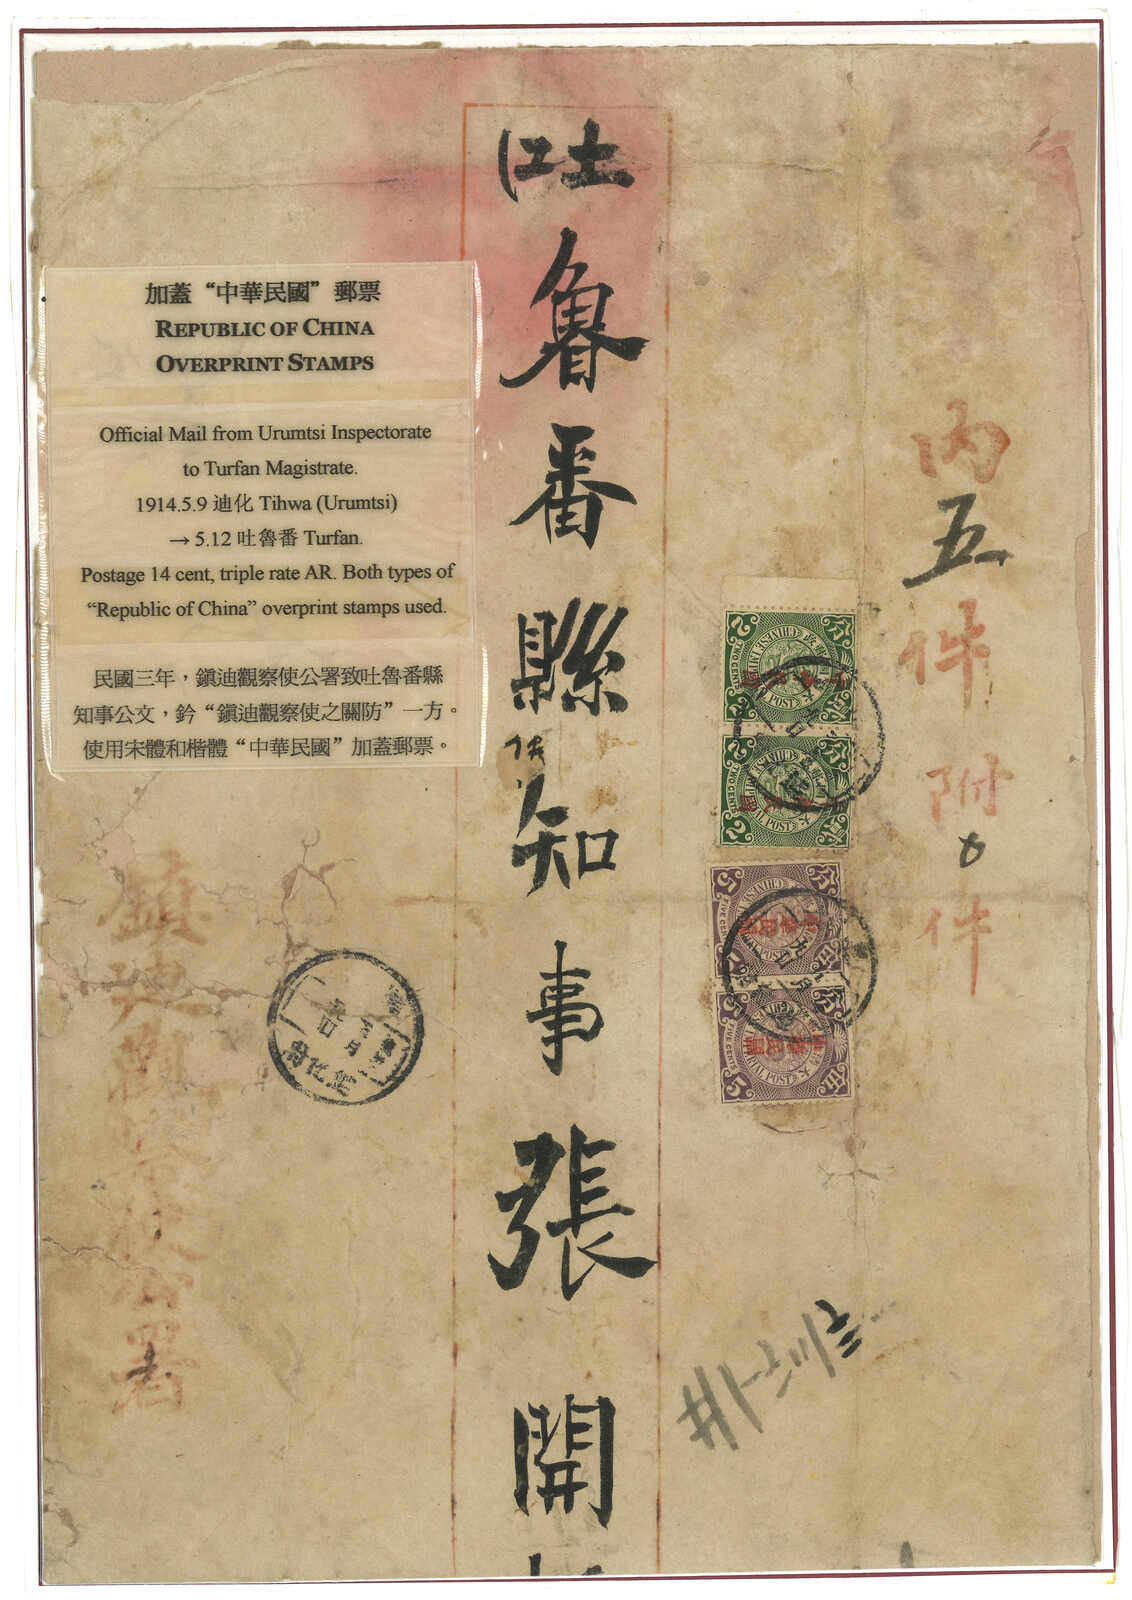 內五件附 件
吐魯番縣知事張開
加蓋“中華民國”郵票
REPUBLIC OF CHINA
OVERPRINT STAMPS
Official Mail from Urumtsi Inspectorate
to Turfan Magistrate.
1914.5.9 迪化 Tihwa (Urumtsi)
→ 5.12 吐魯番 Turfan.
Postage 14 cent, triple rate AR. Both types of
“Republic of China” overprint stamps used.
民國三年，鎮迪觀察使公署致吐魯番縣
知事公文，鈐“鎮迪觀察使之關防”一方。
使用宋體和楷體“中華民國”加蓋郵票。
鎮迪觀察使公署
2
TWO CENTS
2
TWO CENTS
5
FIVE CENTS
5
FIVE CENTS